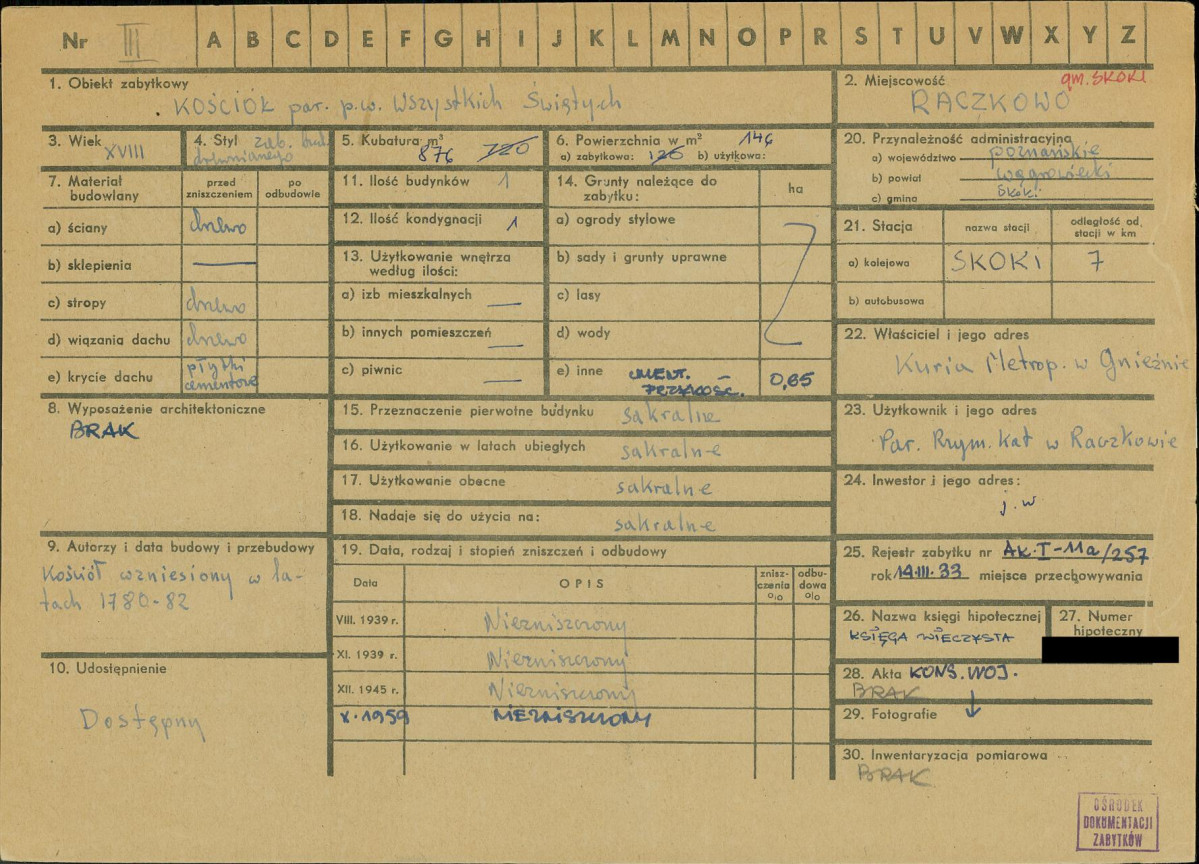 Nr III A B C D E F G H I J K L M N O P R S T U V W X Y Z
1. Obiekt zabytkowy
KOŚCIÓŁ par. p.w. Wszystkich Świętych
2. Miejscowość
gm. SKOKI
RACZKOWO
3. Wiek
XVIII
4. Styl zab. bud.
drewnianego
5. Kubatura m³
876 720
6. Powierzchnia w m² 146
a) zabytkowa: 126 b) użytkowa:
20. Przynależność administracyjna
a) województwo poznańskie
b) powiat wągrowiecki
c) gmina Skoki
7. Materiał budowlany
przed zniszczeniem
po odbudowie
a) ściany drzewo
b) sklepienia —
c) stropy drzewo
d) wiązania dachu drzewo
e) krycie dachu płytki cementowe
11. Ilość budynków 1
12. Ilość kondygnacji 1
13. Użytkowanie wnętrza
według ilości:
a) izb mieszkalnych —
b) innych pomieszczeń —
c) piwnic —
14. Grunty należące do
zabytku:
ha
a) ogrody stylowe
b) sady i grunty uprawne
c) lasy
d) wody
e) inne CMENT. –
PRZYKOŚC. 0,65
21. Stacja
nazwa stacji
odległość od
stacji w km
a) kolejowa SKOKI 7
b) autobusowa
22. Właściciel i jego adres
Kuria Metrop. w Gnieźnie
8. Wyposażenie architektoniczne
BRAK
15. Przeznaczenie pierwotne budynku
sakralne
16. Użytkowanie w latach ubiegłych
sakralne
17. Użytkowanie obecne
sakralne
18. Nadaje się do użycia na:
sakralne
23. Użytkownik i jego adres
Par. Rzym. Kat w Raczkowie
24. Inwestor i jego adres:
j.w
9. Autorzy i data budowy i przebudowy
Kościół wzniesiony w la-
tach 1780-82
19. Data, rodzaj i stopień zniszczeń i odbudowy
Data
OPIS
znisz-
czenia
o/o
odbu-
dowa
o/o
VIII. 1939 r. Niezniszczony
XI. 1939 r. Niezniszczony
XII. 1945 r. Niezniszczony
X. 1959 NIEZNISZCZONY
25. Rejestr zabytku nr AK.I-11a/257
rok 14.III.33 miejsce przechowywania
26. Nazwa księgi hipotecznej
KSIĘGA WIECZYSTA
27. Numer
hipoteczny
10. Udostępnienie
Dostępny
28. Akta KONS. WOJ.
BRAK
29. Fotografie
30. Inwentaryzacja pomiarowa
BRAK
OŚRODEK
DOKUMENTACJI
ZABYTKÓW